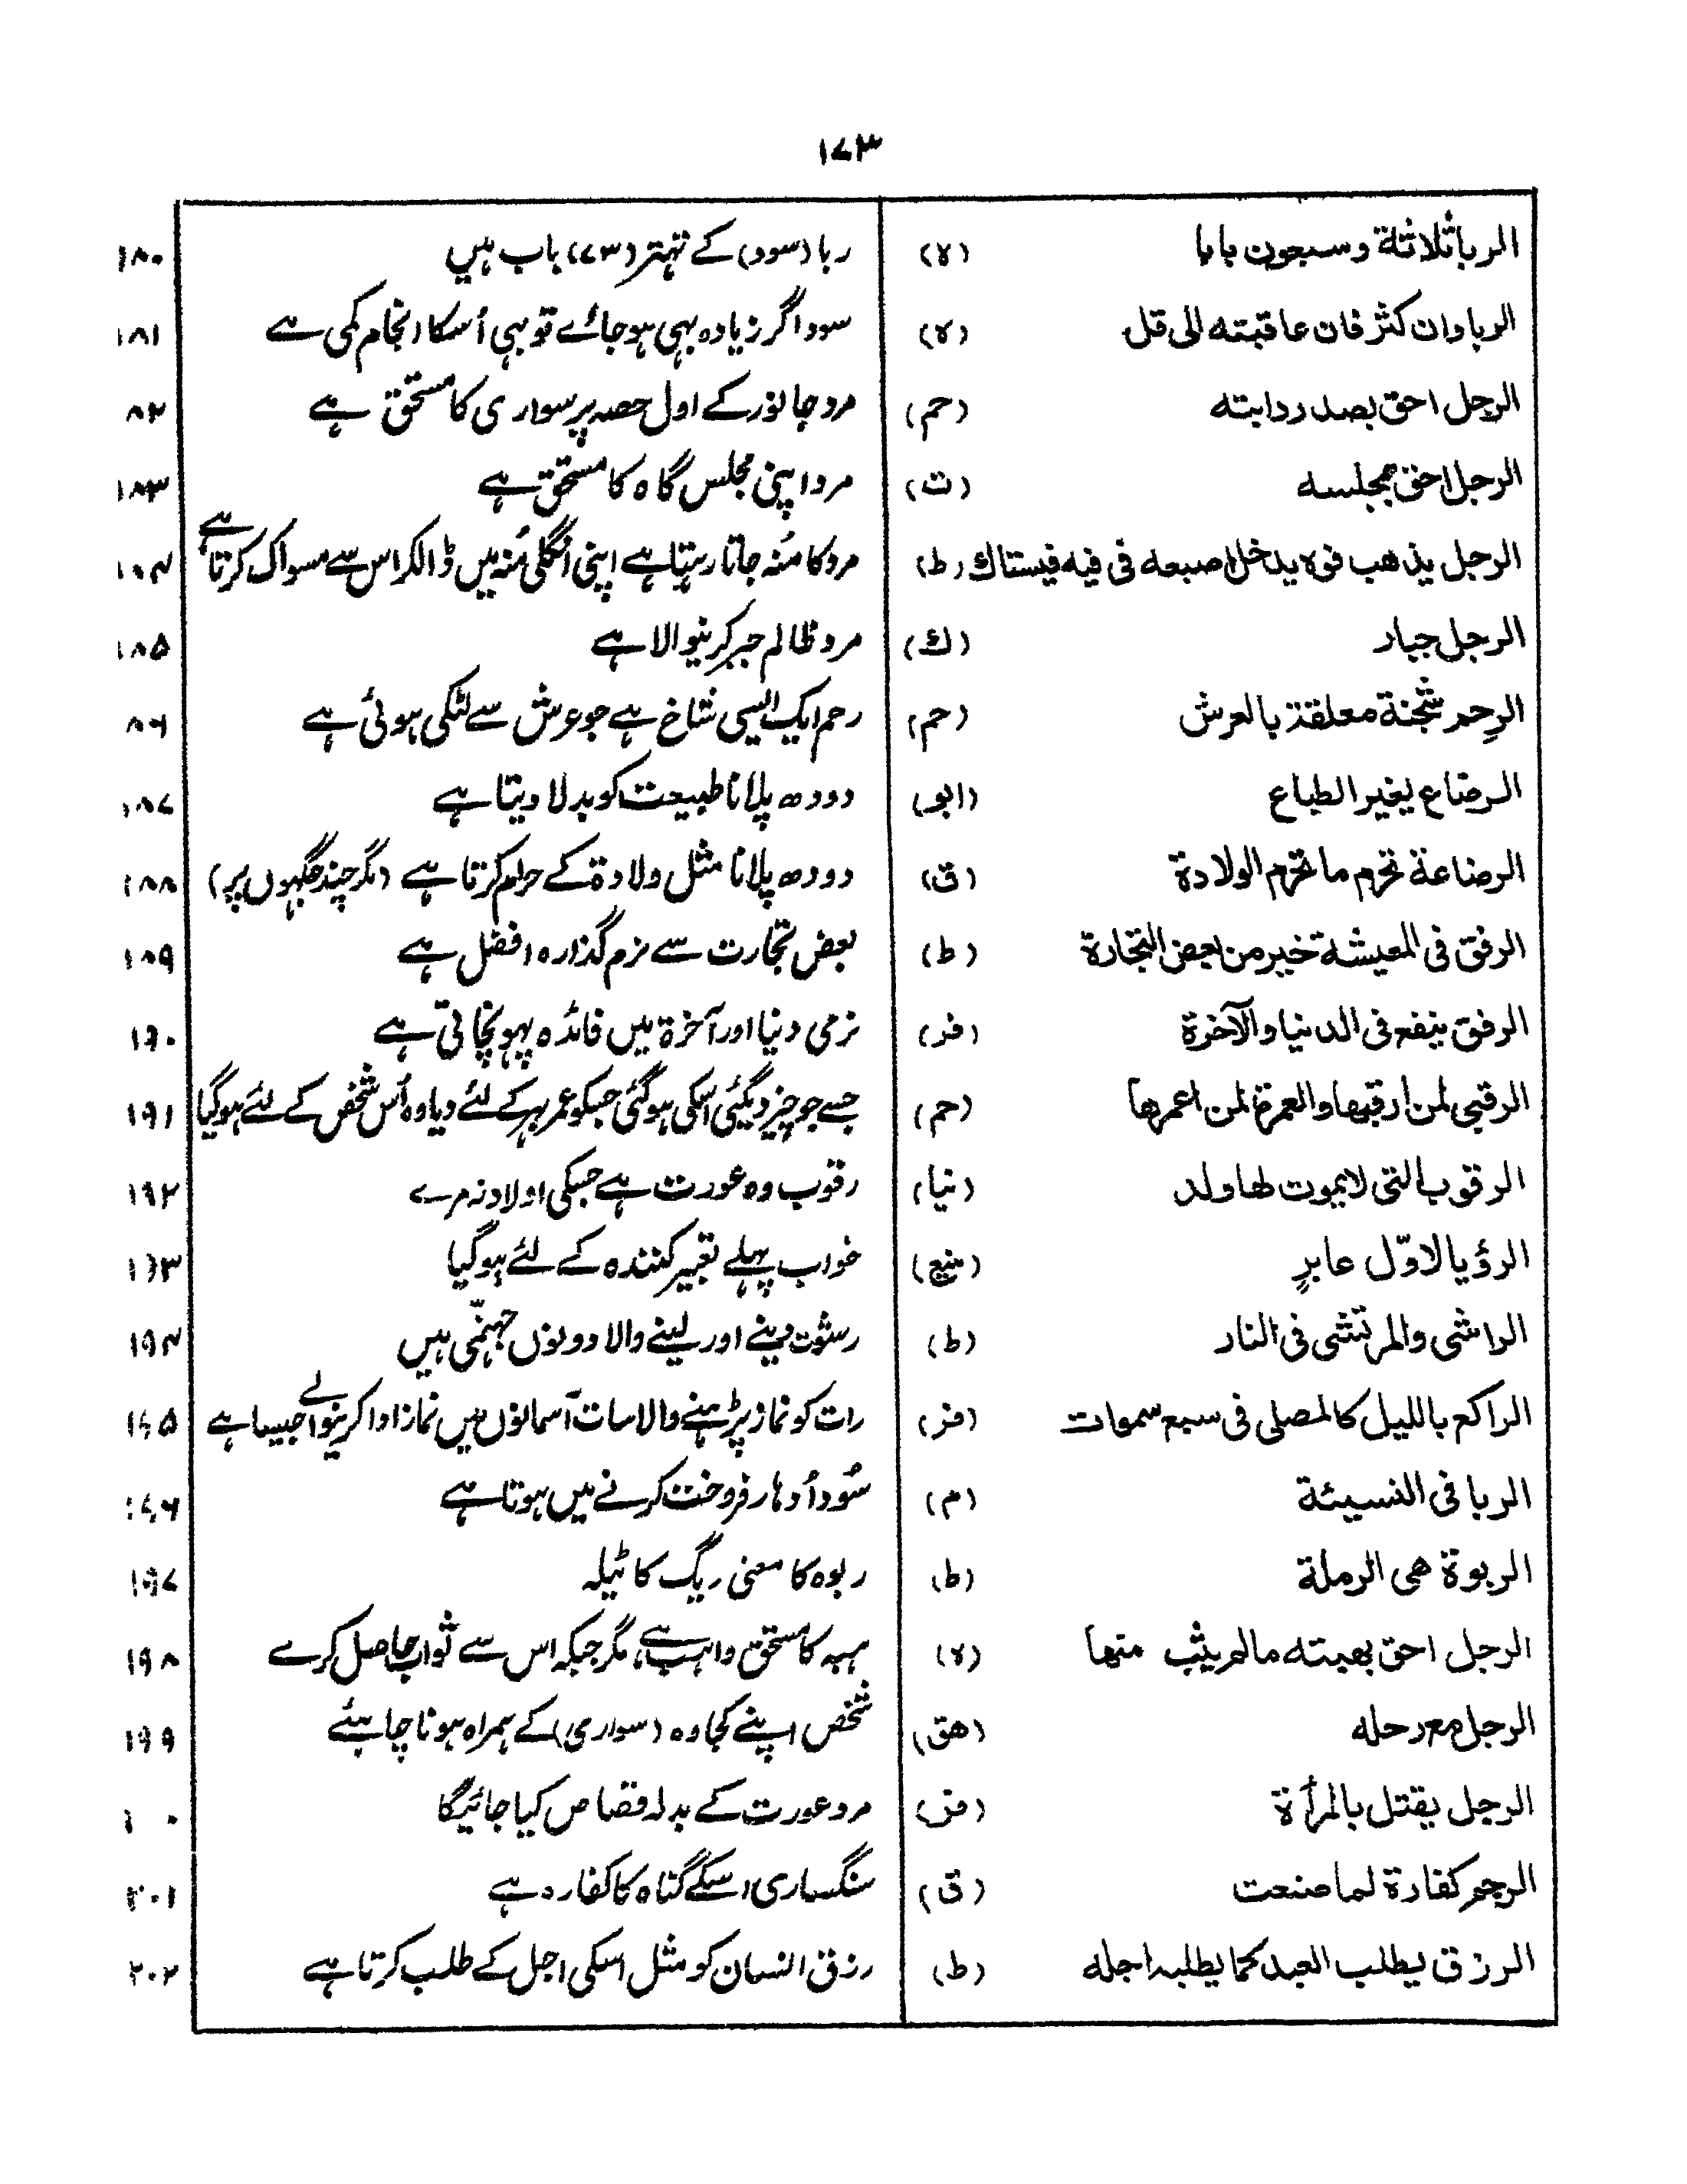 ۱۷۳
الربا ثلاثة وسبعون بابا (ہ) ربا (سود) کے تہتر (۷۳) باب ہیں ۱۸۰
الربا وان کثر فان عاقبته الی قل (ہ) سود اگر زیادہ بہی ہو جائے تو بہی اُسکا انجام کمی ہے ۱۸۱
الرجل احق بصدر دابته (حم) مرد جانور کے اول حصہ پر سواری کا مستحق ہے ۸۲
الرجل احق بمجلسه (ت) مرد اپنی مجلس گاہ کا مستحق ہے ۱۸۳
الرجل یذهب فوه یدخل اصبعه فی فیه فیستاك (ط) مرد کا مُنہ جاتا رہتا ہے اپنی انگلی مُنہ میں ڈالکر اس سے مسواک کرتا ہے ۱۸۴
الرجل جبار (ك) مرد ظالم جبر کرنیوالا ہے ۱۸۵
الرحم شجنة معلقة بالعرش (حم) رحم ایک ایسی شاخ ہے جو عرش سے لٹکی ہوئی ہے ۸۶
الرضاع یغیر الطباع (ابو) دودھ پلانا طبیعت کو بدلا دیتا ہے ۱۸۷
الرضاعة تحرم ما تحرم الولادة (ق) دودھ پلانا مثل ولادة کے حرام کرتا ہے (مگر چند جگہوں پر) ۱۸۸
الرفق فی المعیشة خیر من بعض التجارة (ط) بعض تجارت سے نرم گذارہ افضل ہے ۱۸۹
الرفق ینفع فی الدنیا والآخرة (فر) نرمی دنیا اور آخرة میں فائدہ پہونچاتی ہے ۱۹۰
الرقبی لمن ارقبها والعمرة لمن اعمرها (حم) جسے جو چیز دیگئی اسکی ہوگئی جسکو عمر بہر کے لئے دیا وہ اُس شخص کے لئے ہوگیا ۱۹۱
الرقوب التی لا یموت لها ولد (نیا) رقوب وہ عورت ہے جسکی اولاد نہ مرے ۱۹۲
الرؤیا لاوّل عابرٍ (منیع) خواب پہلے تعبیر کنندہ کے لئے ہوگیا ۱۹۳
الراشی والمرتشی فی النار (ط) رشوت دینے اور لینے والا دونوں جہنّمی ہیں ۱۹۴
الراکع باللیل کالمصلی فی سبع سموات (فر) رات کو نماز پڑہنے والا سات آسمانوں میں نماز ادا کرنیوالے جیسا ہے ۱۹۵
الربا فی النسیئة (م) سُود اُدہار فروخت کرنے میں ہوتا ہے ۱۹۶
الربوة هی الرملة (ط) ربوہ کا معنی ریگ کا ٹیلہ ۱۹۷
الرجل احق بهبته مالم یثب منها (ہ) ہبہ کا مستحق واہب ہے، مگر جبکہ اس سے ثواب حاصل کرے ۱۹۸
الرجل مع رحله (هق) شخص اپنے کجاوہ (سواری) کے ہمراہ ہونا چاہئے ۱۹۹
الرجل یقتل بالمرأة (فر) مرد عورت کے بدلہ قصاص کیا جائیگا
الرجم کفارة لما صنعت (ق) سنگساری اسکے گناہ کا کفارہ ہے ۲۰۱
الرزق یطلب العبد کما یطلبه اجله (ط) رزق انسان کو مثل اسکی اجل کے طلب کرتا ہے ۲۰۲